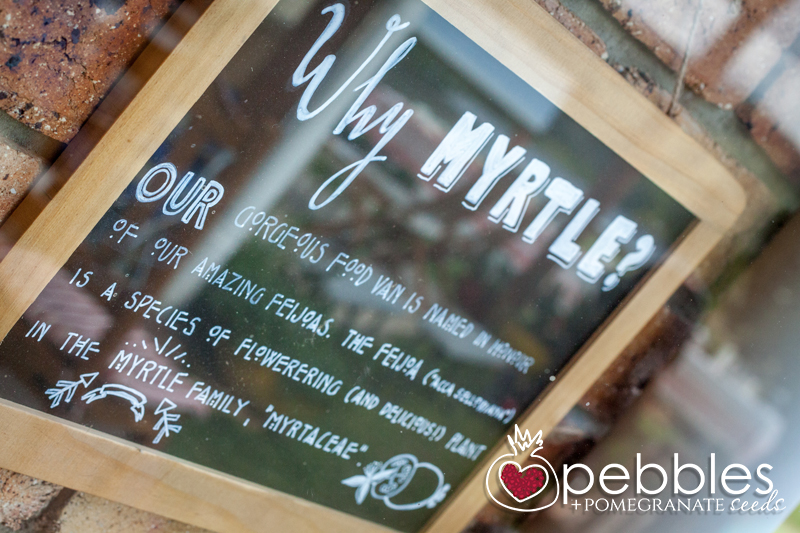 Why MYRTLE?
OUR GORGEOUS FOOD VAN IS NAMED IN HONOUR
OF OUR AMAZING FEIJOAS. THE FEIJOA ("ACCA SELLOWIANA")
IS A SPECIES OF FLOWERERING (AND DELICIOUS!) PLANT
IN THE MYRTLE FAMILY, "MYRTACEAE".
pebbles
+POMEGRANATE seeds